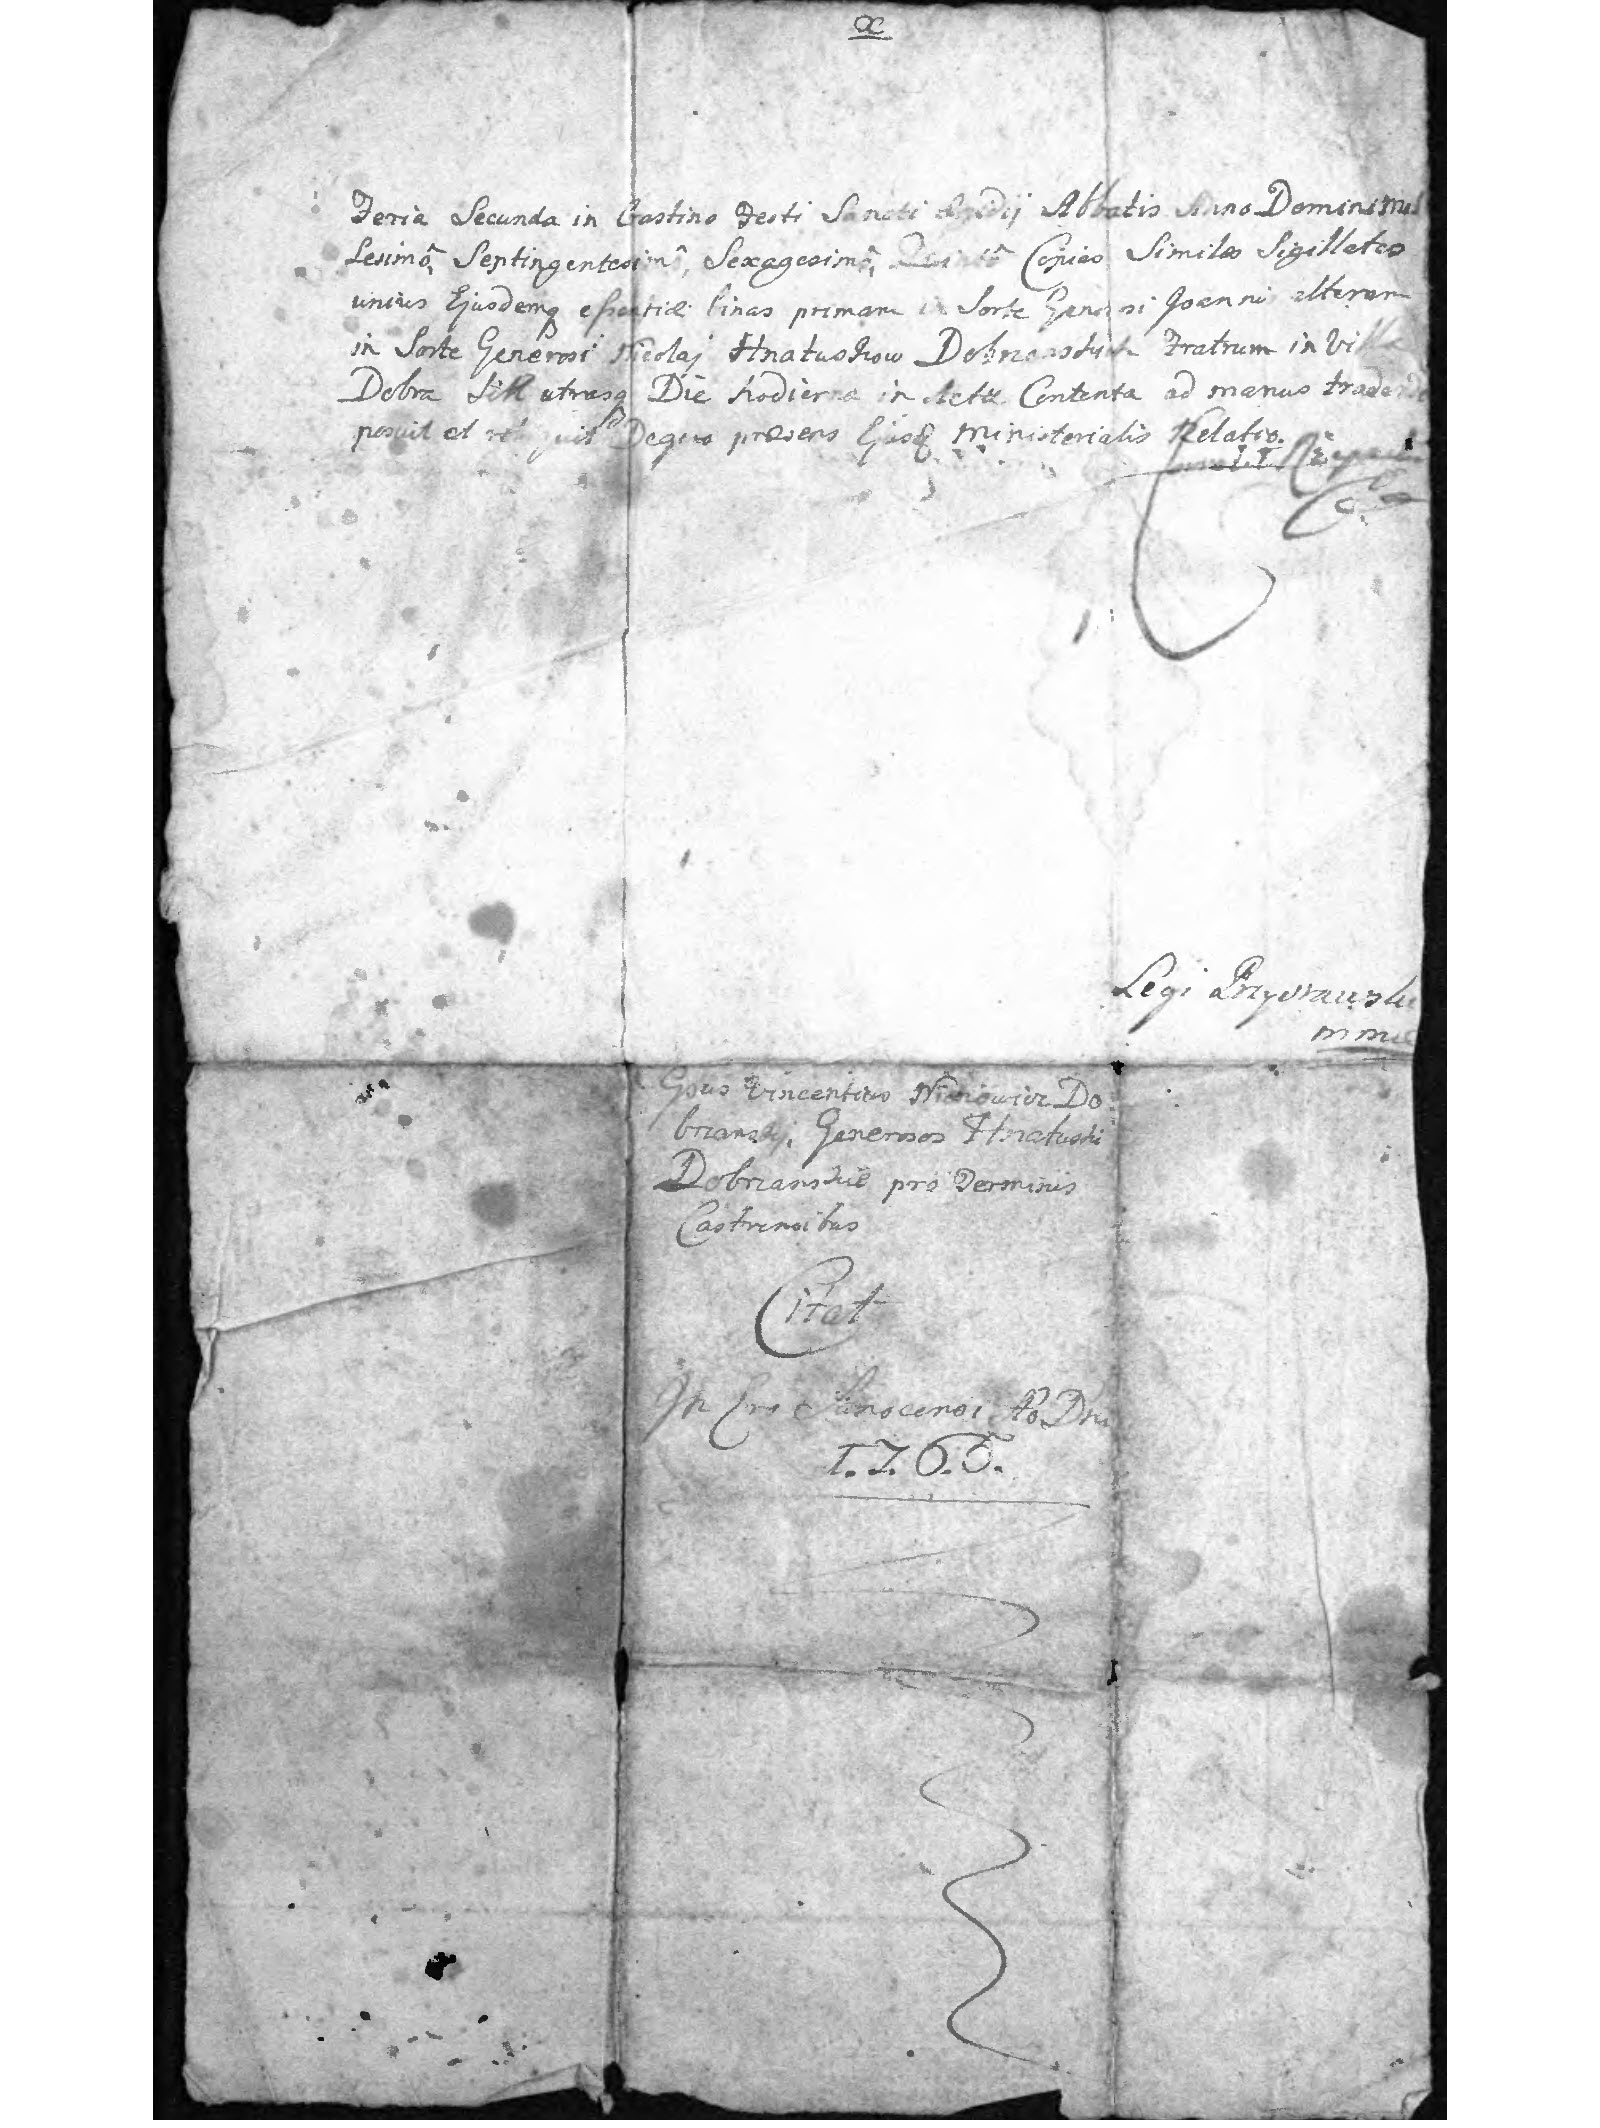 Feria Secunda in Crastino Festi Sancti Egidij Abbatis Anno Domini Mil
lesimô, Septingentesimô, Sexagesimô, Quintô Copias Similes Sigillatas
unius Ejusdemq essentiæ binas primam in Sorte Generosi Joannis alteram
in Sorte Generosi Nicolaj Hnatuskow Dobrzanskich Fratrum in Villa
Dobra Sitt utrasq Die hodierna in Actu Contenta ad manus tradendo
posuit et reliquit Dequo præsens Ejusq Ministerialis Relatio.
Legi
mmp
Gsus Vincentius Do
brzanskij, Generosos Hnatuski
Dobrzanskie pro Terminis
Castrensibus
Citat
In Cro Sanocensi Ao Dni
1.7.6.5.